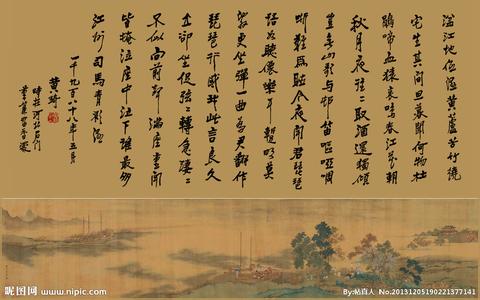 湓江地低湿黄蘆苦竹繞
宅生其間旦暮聞何物杜
鵑啼血猿哀鳴春江花朝
秋月夜往往取酒還獨傾
豈無山歌與邨笛嘔啞嘲
哳難為聽今夜聞君琵琶
語如聽僊樂耳暫明莫
辭更坐彈一曲為君翻作
琵琶行感我此言良久
立卻坐促弦弦轉急淒淒
不似向前聲滿座重聞
皆掩泣座中泣下誰最多
江州司馬青衫濕
一千九百八十八年五月
黄琦
時在河北石门
昵图网 www.nipic.com
By:帖真人 No.20131205190221377141